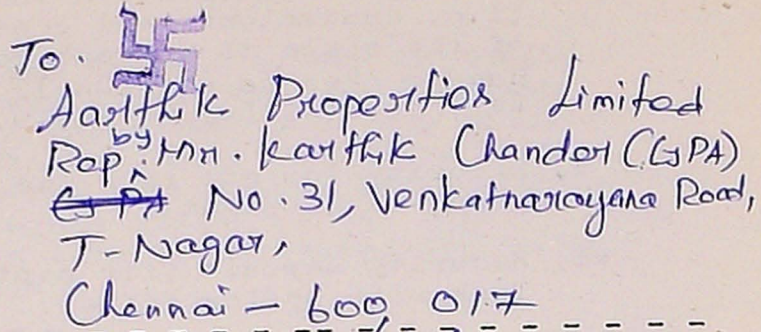 To.
Aarthik Properties Limited
Rep by: Mr. Karthik Chander (GPA)
GPA No. 31, Venkatnarayana Road,
T-Nagar,
Chennai - 600 017